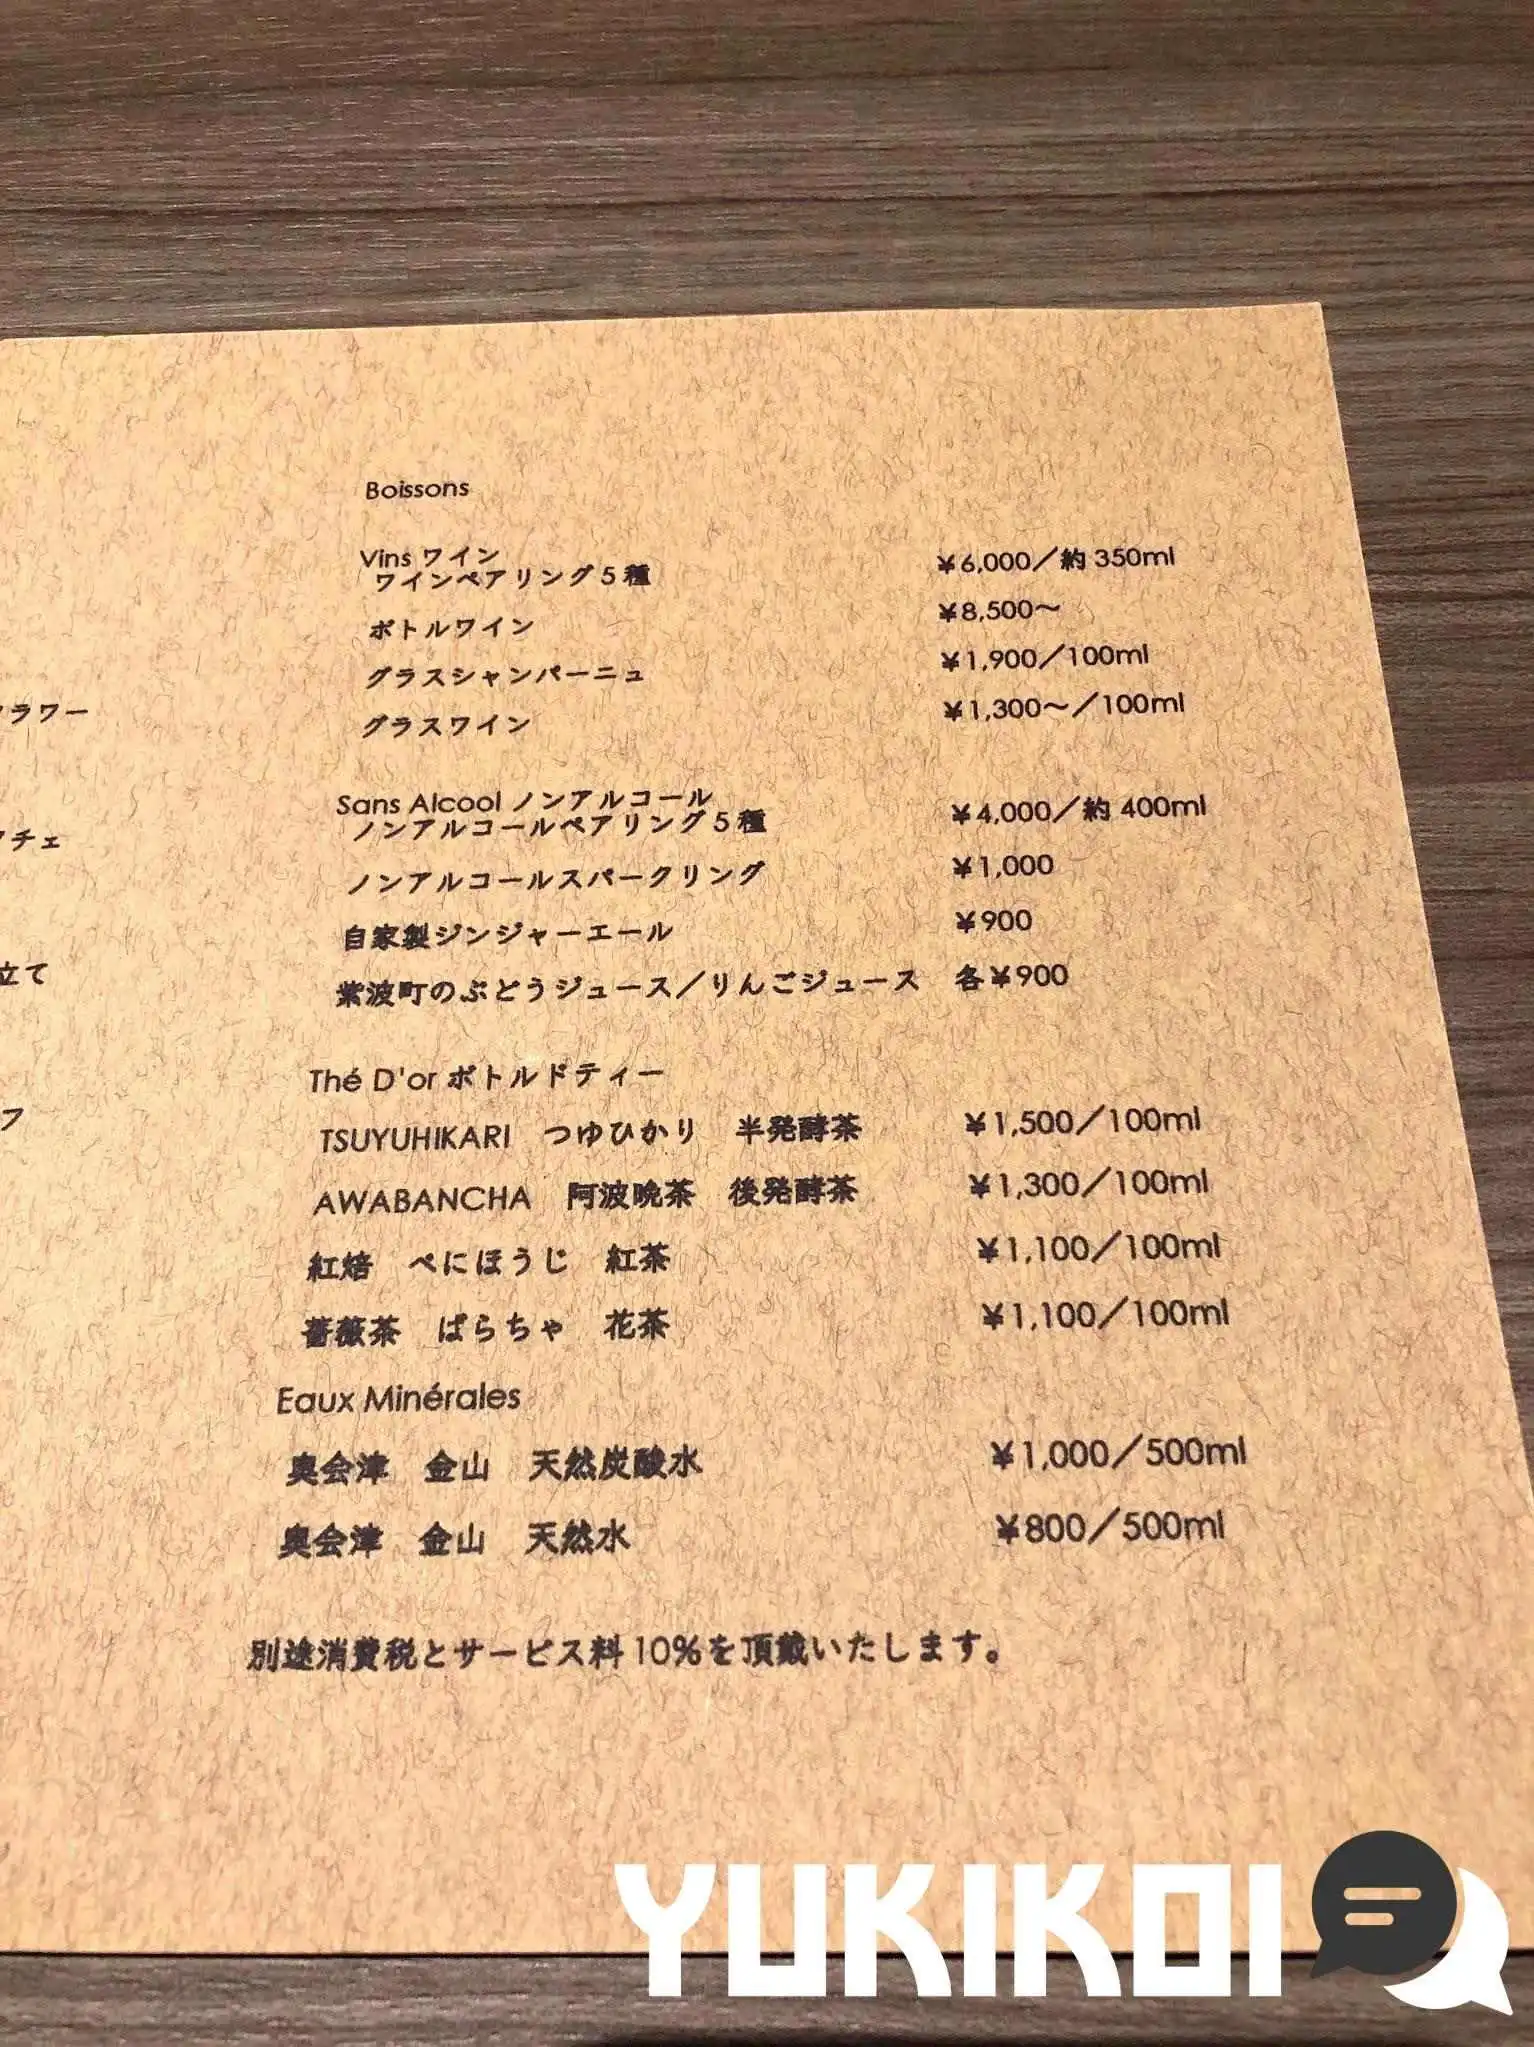 Boissons
Vins ワイン
ワインペアリング5種 ¥6,000/約350ml
ボトルワイン ¥8,500〜
グラスシャンパーニュ ¥1,900/100ml
グラスワイン ¥1,300〜/100ml
ラワー
Sans Alcool ノンアルコール
ノンアルコールペアリング5種 ¥4,000/約400ml
チェ
ノンアルコールスパークリング ¥1,000
自家製ジンジャーエール ¥900
立て
紫波町のぶどうジュース/りんごジュース 各¥900
Thé D'or ボトルドティー
フ
TSUYUHIKARI つゆひかり 半発酵茶 ¥1,500/100ml
AWABANCHA 阿波晩茶 後発酵茶 ¥1,300/100ml
紅焙 べにほうじ 紅茶 ¥1,100/100ml
薔薇茶 ばらちゃ 花茶 ¥1,100/100ml
Eaux Minérales
奥会津 金山 天然炭酸水 ¥1,000/500ml
奥会津 金山 天然水 ¥800/500ml
別途消費税とサービス料10%を頂戴いたします。
YUKIKOI